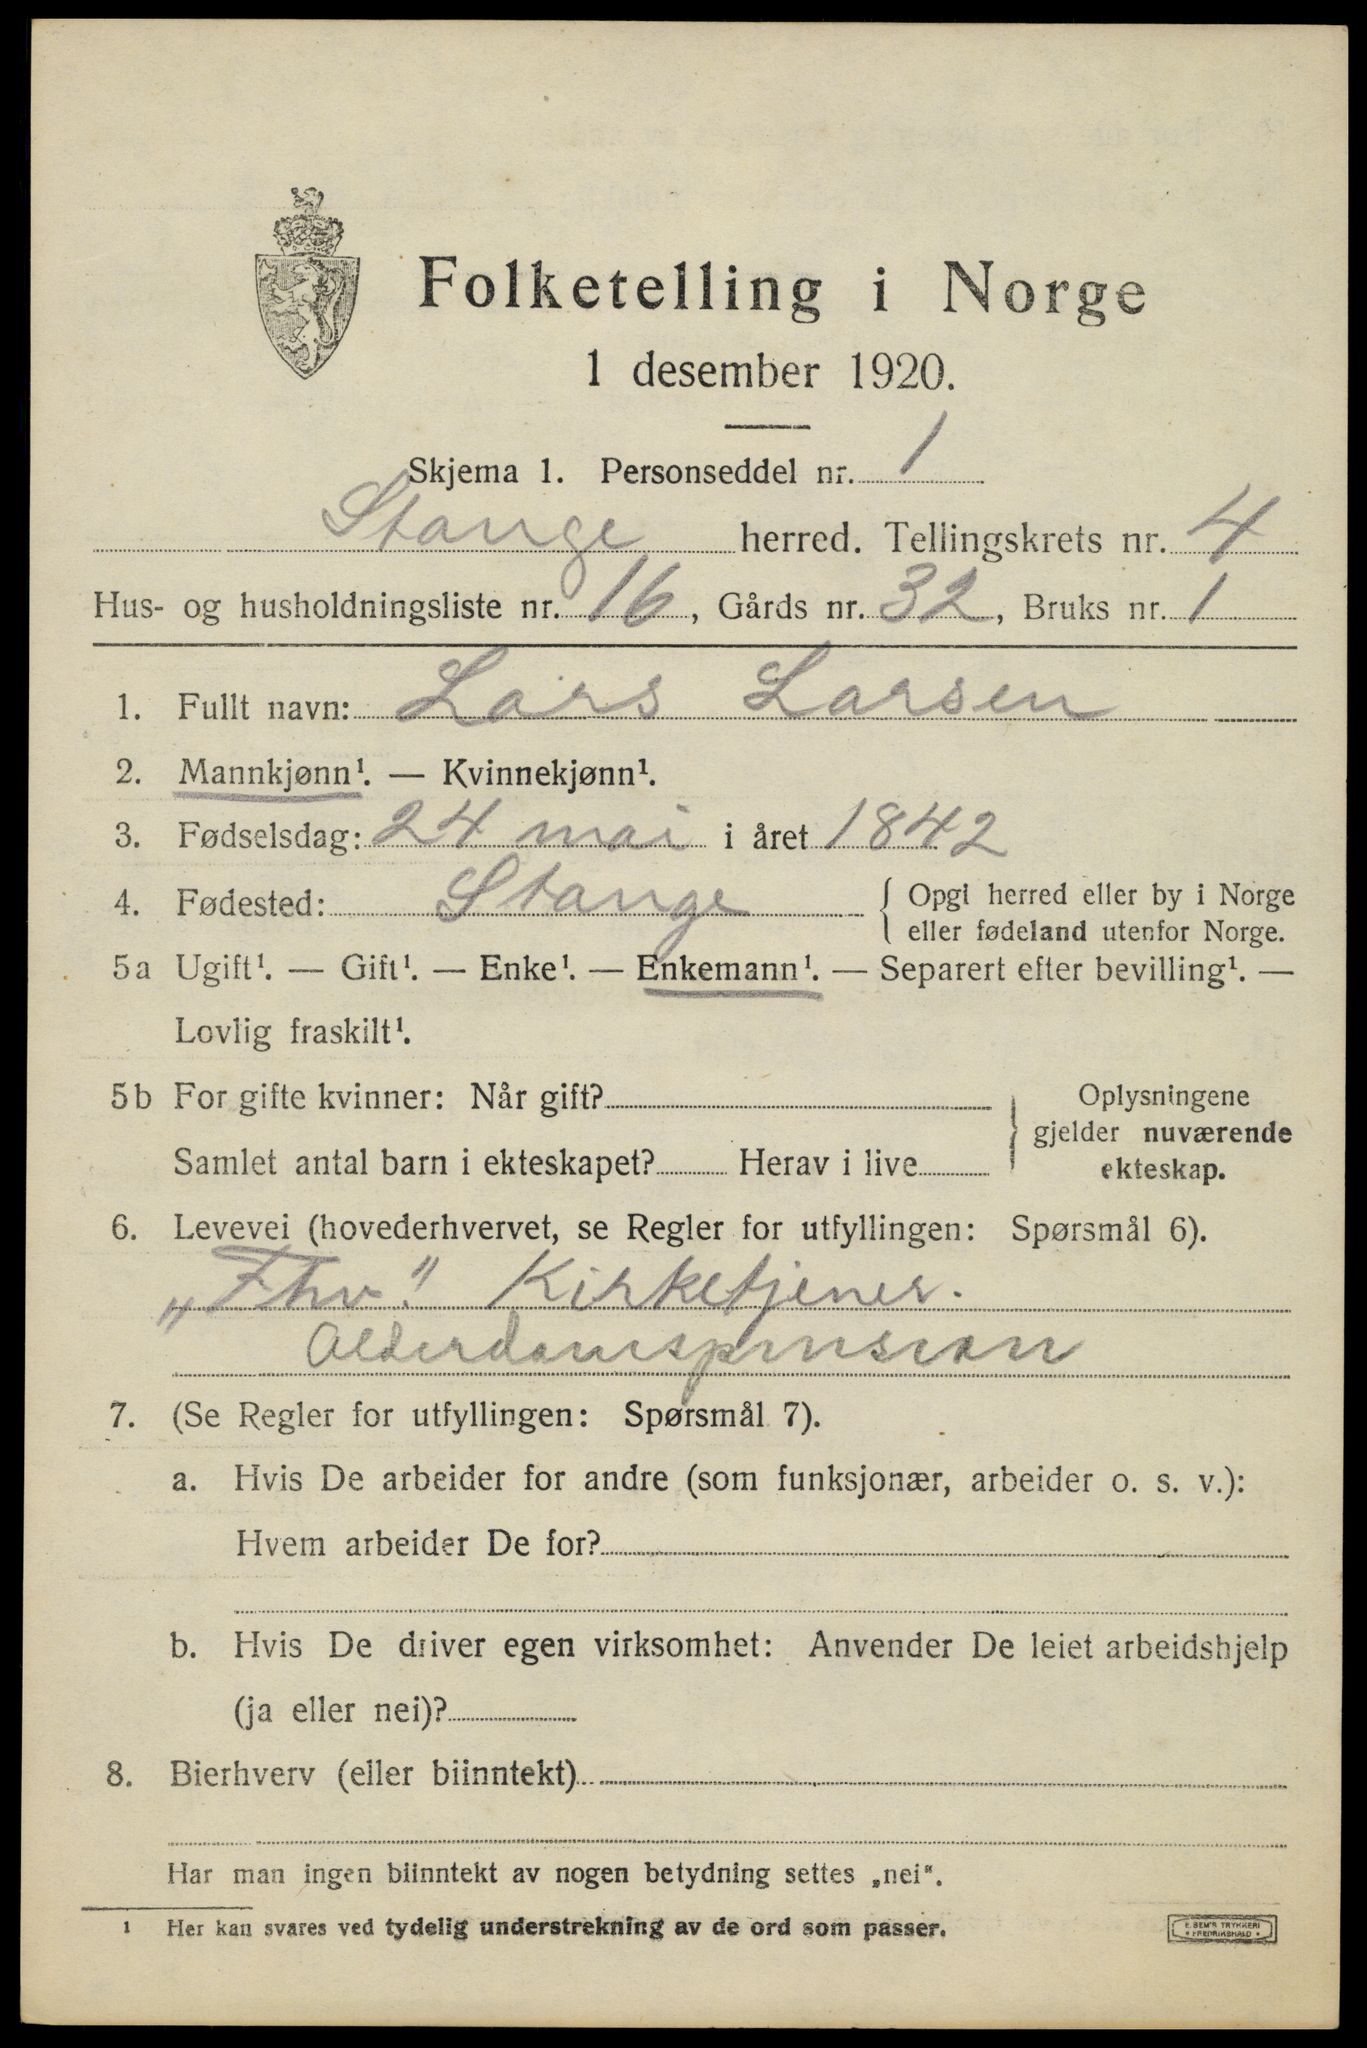 Folketelling i Norge
1 desember 1920.
Skjema 1. Personseddel nr. 1
Stange herred. Tellingskrets nr. 4
Hus- og husholdningsliste nr. 16, Gårds nr. 32, Bruks nr. 1
1. Fullt navn: Lars Larsen
2. Mannkjønn¹. — Kvinnekjønn¹.
3. Fødselsdag: 24 mai i året 1842
4. Fødested: Stange { Opgi herred eller by i Norge
eller fødeland utenfor Norge.
5a Ugift¹. — Gift¹. — Enke¹. — Enkemann¹. — Separert efter bevilling¹. —
Lovlig fraskilt¹.
5b For gifte kvinner: Når gift?
Samlet antal barn i ekteskapet? Herav i live
} Oplysningene
gjelder nuværende
ekteskap.
6. Levevei (hovederhvervet, se Regler for utfyllingen: Spørsmål 6).
„Fhv." Kirketjener.
Alderdomspension
7. (Se Regler for utfyllingen: Spørsmål 7).
a. Hvis De arbeider for andre (som funksjonær, arbeider o. s. v.):
Hvem arbeider De for?
b. Hvis De driver egen virksomhet: Anvender De leiet arbeidshjelp
(ja eller nei)?
8. Bierhverv (eller biinntekt)
Har man ingen biinntekt av nogen betydning settes „nei".
¹ Her kan svares ved tydelig understrekning av de ord som passer.
E. SEM'S TRYKKERI
• FREDRIKSHALD •